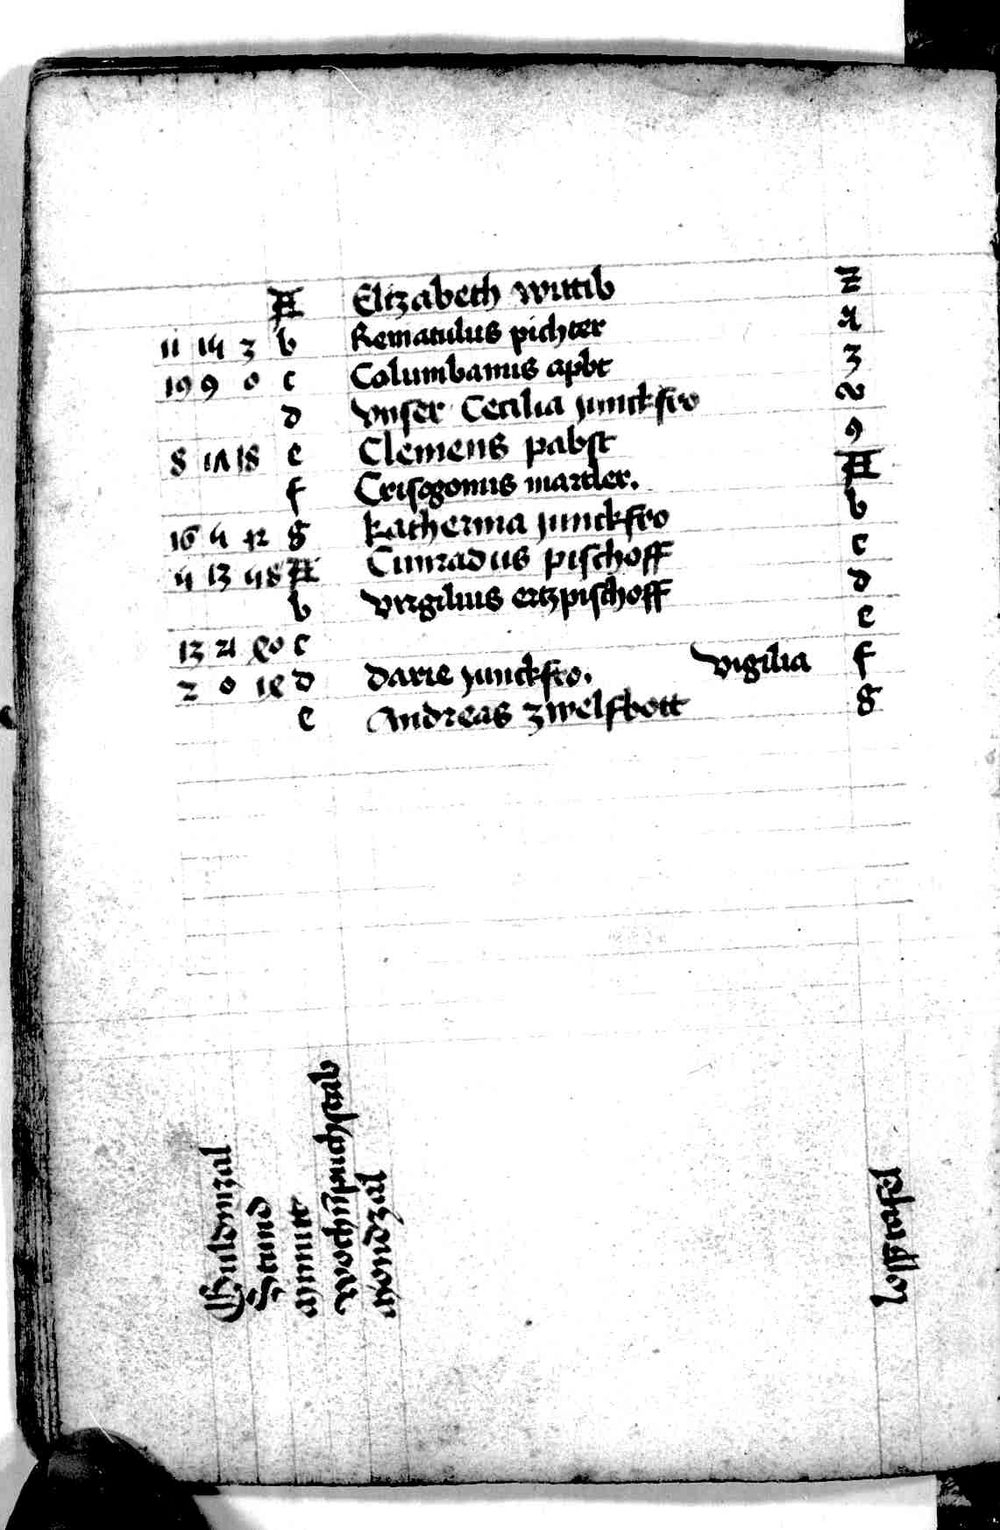 A Elizabeth wittib z
11 14 3 b Rematulus pichter
19 9 0 c Columbanus apbt 3
d Vnser Cecilia junckfro
8 18 e Clemens pabst 9
f Crisogonus martler. A
16 4 42 g Katherina junckfro b
4 13 48 A Cunradus pischoff c
b Virgilius ertzpischoff d
13 21 c e
d Darie junckfro. Vigilia f
e Andreas zwelfbott g
Guldinzal
Stund
Minutt
Wochnpuchstab
Mondzal
Losstafel